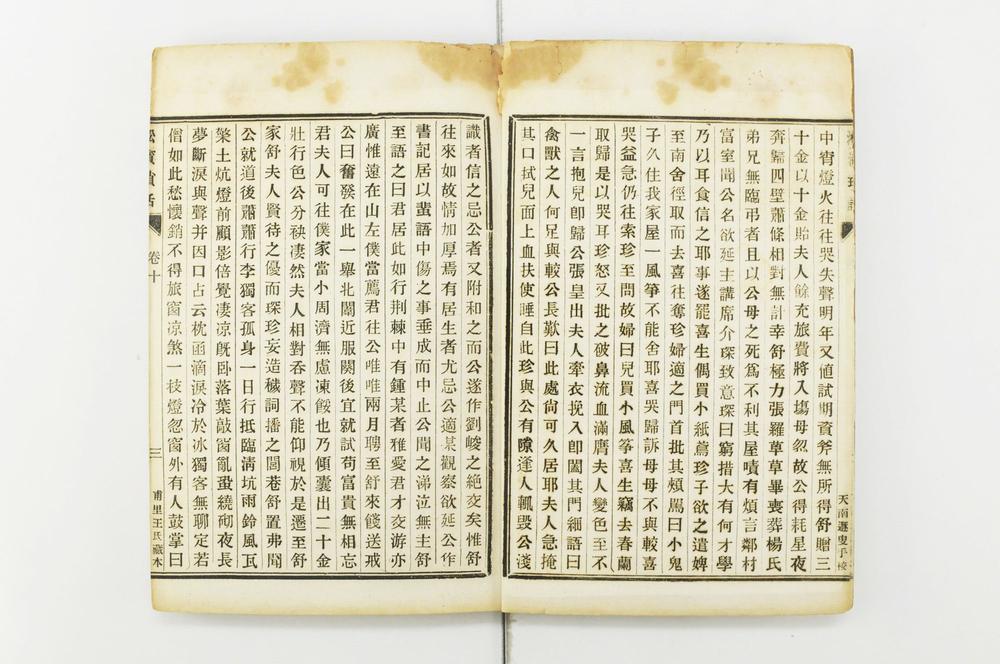 中宵燈火往往哭失聲明年又値試期資斧無所得舒贈三
十金以十金貽夫人餘充旅費將入塲母忽故公得耗星夜
奔歸四壁蕭條相對無計幸舒極力張羅草草畢喪葬楊氏
弟兄無臨弔者且以公母之死爲不利其屋嘖有煩言鄰村
富室聞公名欲延主講席介琛致意琛曰窮措大有何才學
乃以耳食信之耶事遂罷喜生偶買小紙鳶珍子欲之遣婢
至南舍徑取而去喜往奪珍婦適之門首批其頰罵曰小鬼
子久住我家屋一風箏不能舍耶喜哭歸訴母母不與較喜
哭益急仍往索珍至問故婦曰兒買小風箏喜生竊去春蘭
取歸是以哭耳珍怒又批之破鼻流血滿膺夫人變色至不
一言抱兒卽歸公張皇出夫人牽衣挽入卽闔其門細語曰
禽獸之人何足與較公長歎曰此處尙可久居耶夫人急掩
其口拭兒面上血扶使睡自此珍與公有隙逢人輒毀公淺
天南遯叟手校
識者信之忌公者又附和之而公遂作劉峻之絶交矣惟舒
往來如故情加厚焉有居生者尤忌公適某觀察欲延公作
書記居以蜚語中傷之事垂成而中止公聞之涕泣無主舒
至語之曰君居此如行荆棘中有鍾某者雅愛君才交游亦
廣惟遠在山左僕當薦君往公唯唯兩月聘至舒來餞送戒
公曰奮發在此一舉北闈近服闋後宜就試苟富貴無相忘
君夫人可往僕家當小周濟無慮凍餒也乃傾囊出二十金
壯行色公分袂淒然夫人相對吞聲不能仰視於是遷至舒
家舒夫人賢待之優而琛珍妄造穢詞播之閭巷舒置弗聞
公就道後蕭蕭行李獨客孤身一日行抵臨淸坑雨鈴風瓦
槩土炕燈前顧影倍覺凄涼旣卧落葉敲窗亂蛩繞砌夜長
夢斷淚與聲并因口占云枕函滴淚冷於冰獨客無聊定若
僧如此愁懷銷不得旅窗凉煞一枝燈忽窗外有人鼓掌曰
淞濱瑣話
卷十
三
甫里王氏藏本